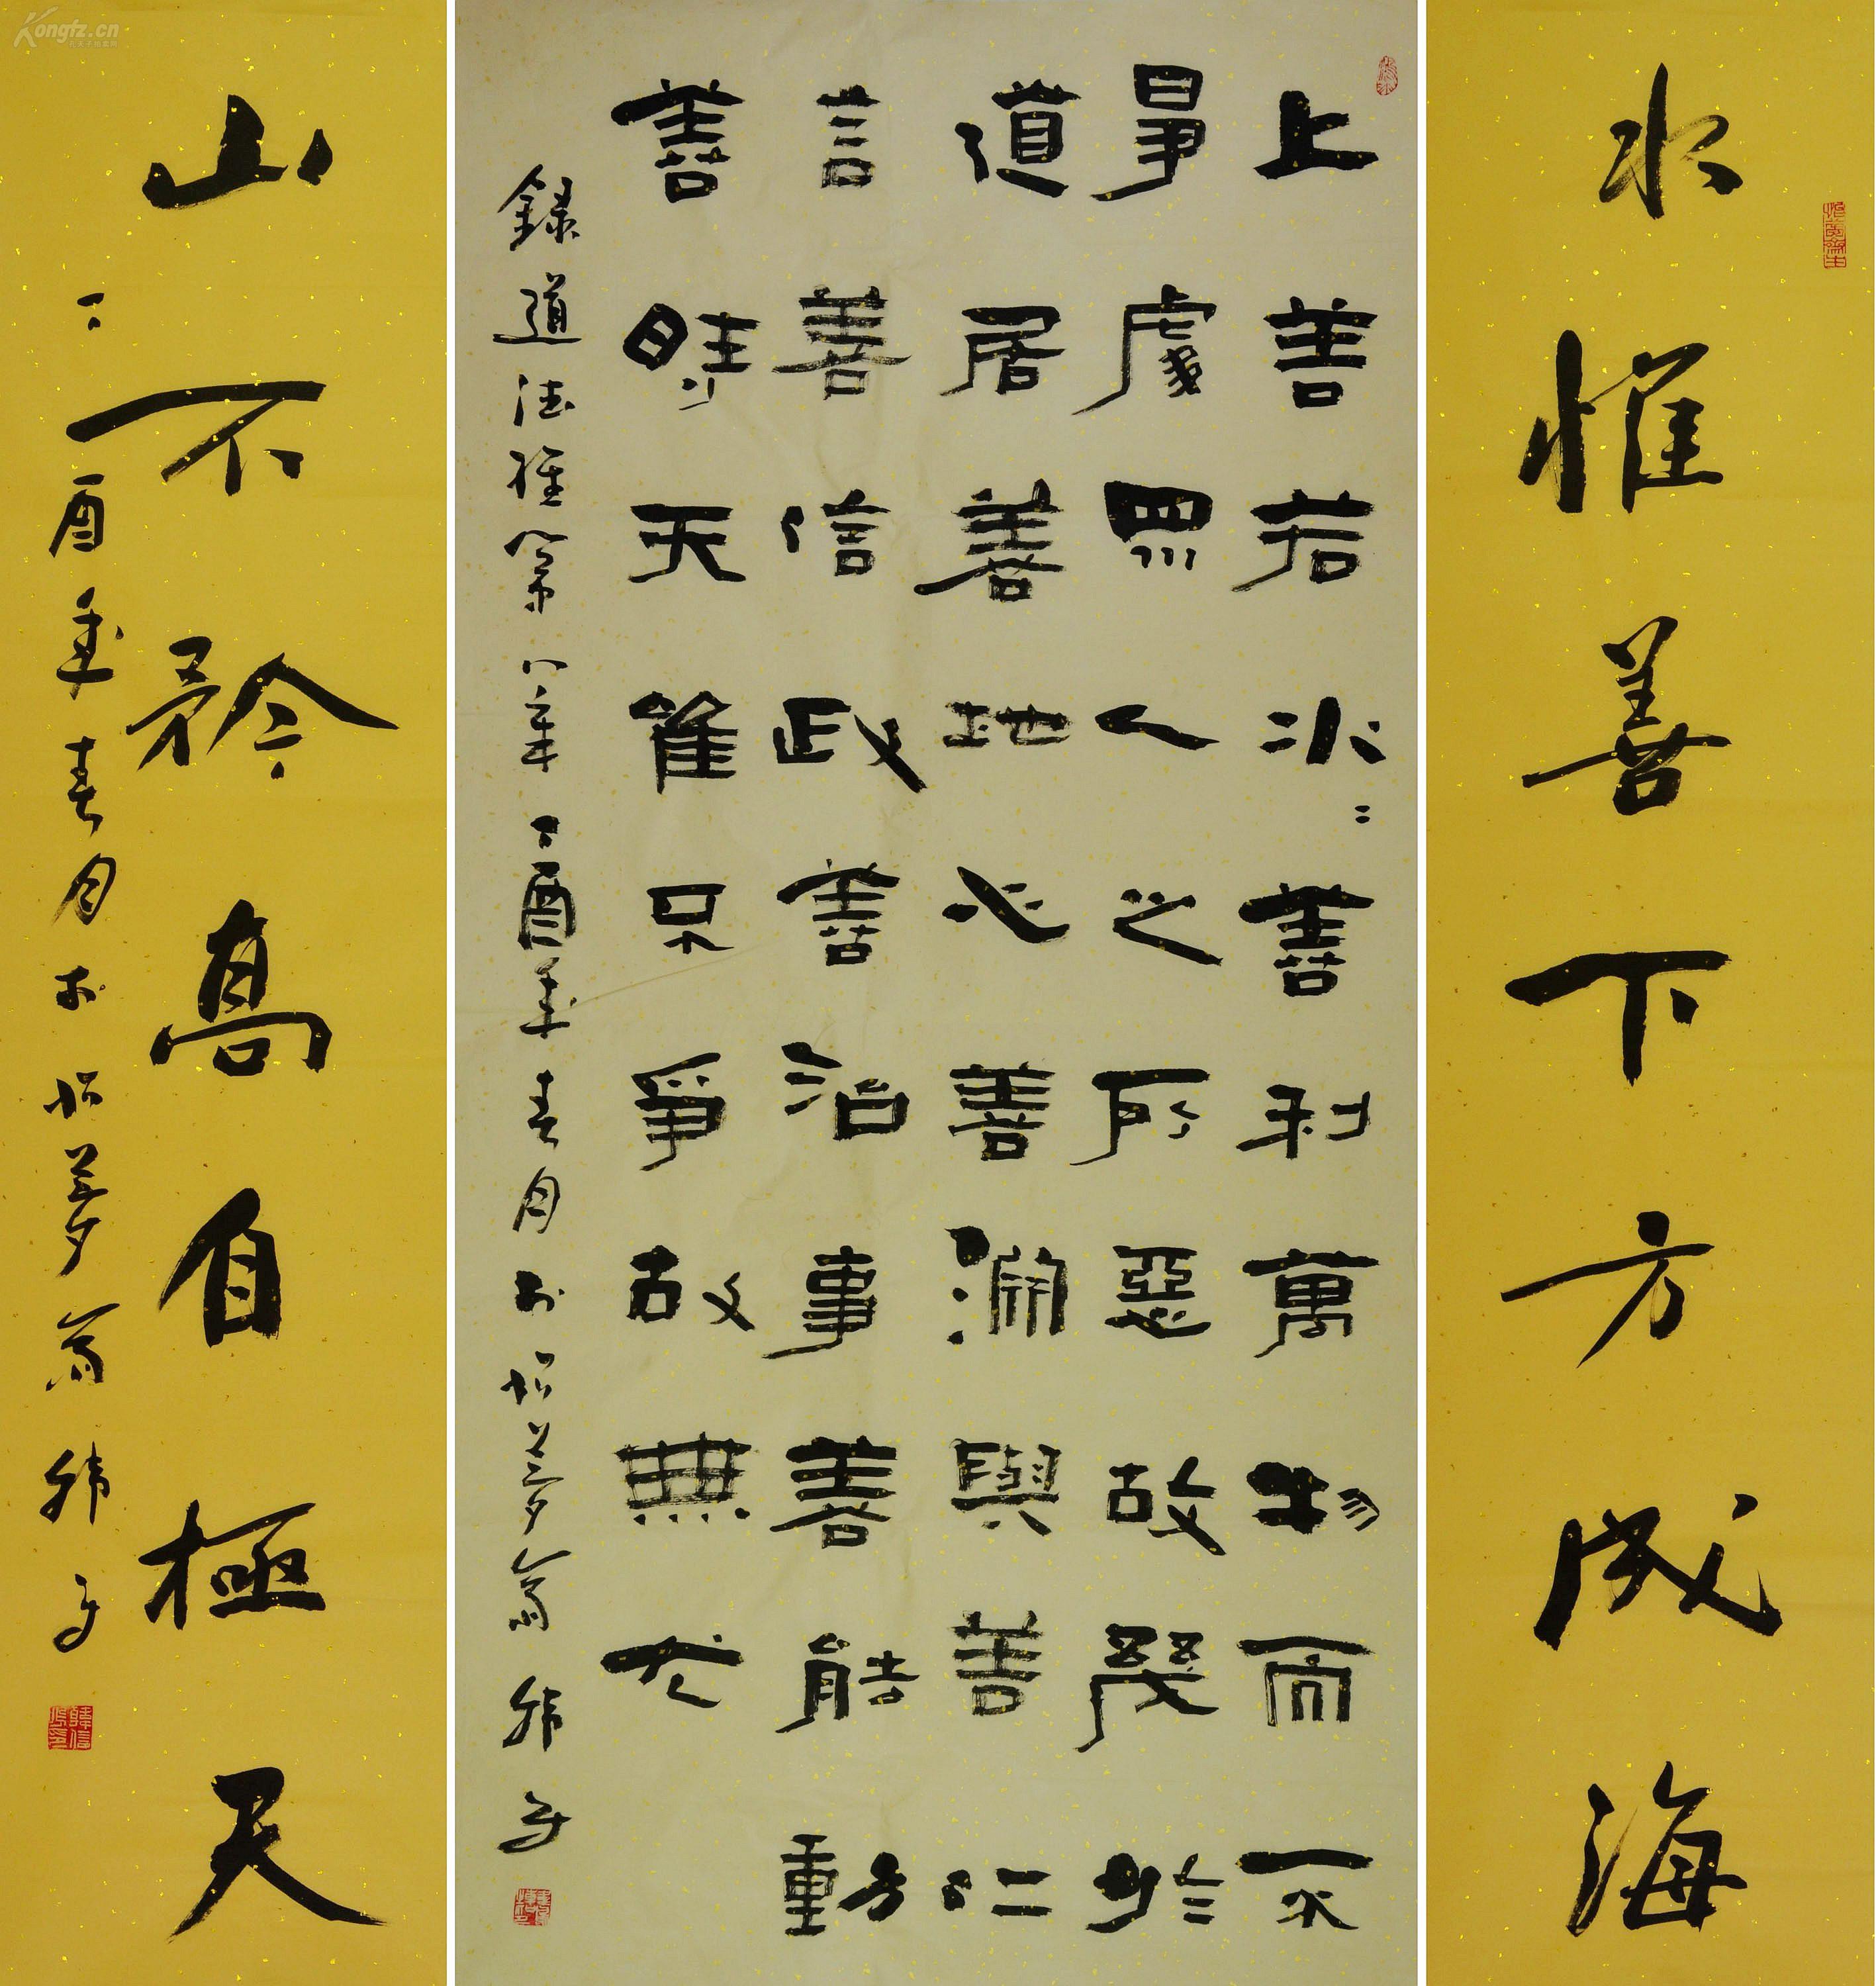 水惟善下方成海
上善若水〻善利萬物而不
爭處眾人之所惡故幾於
道居善地心善淵與善仁
言善信政善治事善能動
善時夫唯不爭故無尤
錄道德經第八章丁酉年春月於怡夢齋
山不矜高自極天
丁酉年春月於怡夢齋
Kongfz.cn